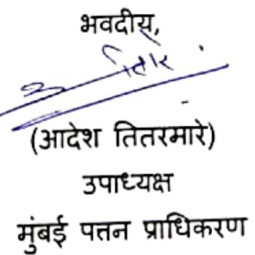 भवदीय,
(आदेश तितरमारे)
उपाध्यक्ष
मुंबई पत्तन प्राधिकरण